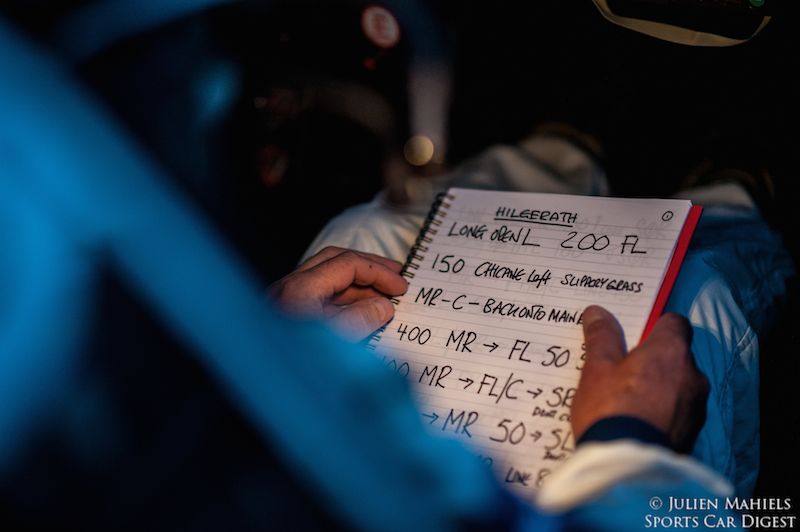 HILGERATH
①
LONG OPEN L 200 FL
150 CHICANE Left SLIPPERY GRASS
MR-C-BACK ONTO MAIN
400 MR → FL 50
MR → FL/C →
→ MR 50 →
LINE
© JULIEN MAHIELS
SPORTS CAR DIGEST